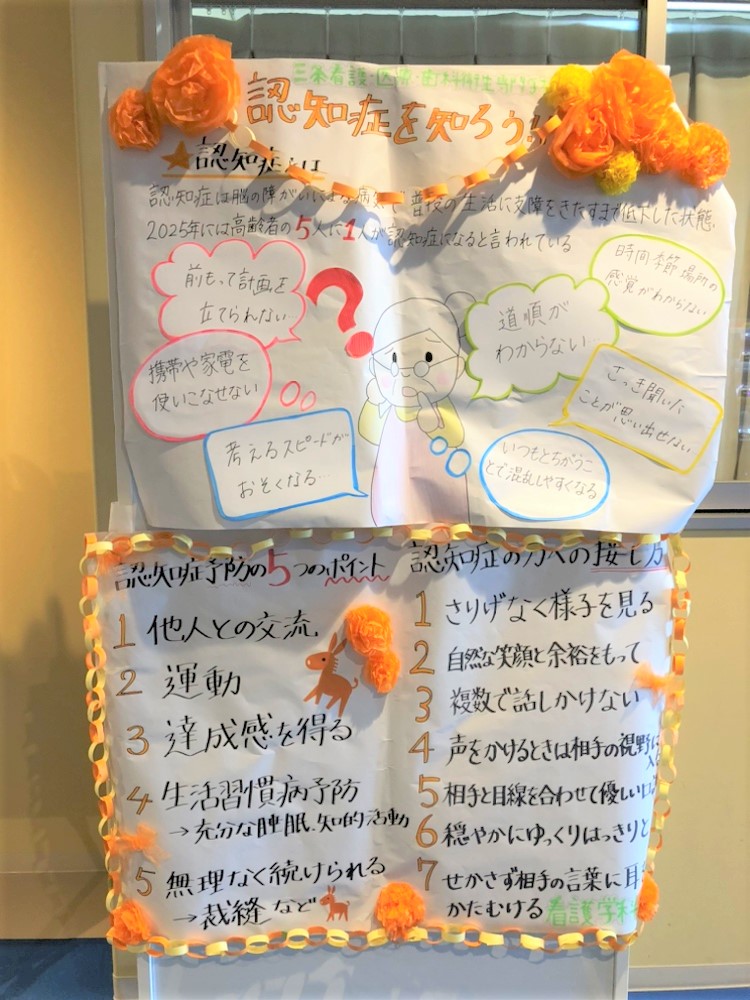 三条看護・医療・歯科衛生専門学校
認知症を知ろう!!
★認知症とは
認知症は脳の障がいによる病気 普段の生活に支障をきたすまで低下した状態.
2025年には高齢者の5人に1人が認知症になると言われている
前もって計画を
立てられない
携帯や家電を
使いこなせない
考えるスピードが
おそくなる…
道順が
わからない…
時間 季節 場所の
感覚がわからない
さっき聞いた
ことが思い出せない
いつもとちがうこ
とで混乱しやすくなる
認知症予防の5つのポイント
1 他人との交流
2 運動
3 達成感を得る
4 生活習慣病予防
→充分な睡眠.知的活動
5 無理なく続けられる
→裁縫など
認知症の方への接し方
1 さりげなく様子を見る
2 自然な笑顔と余裕をもって
3 複数で話しかけない
4 声をかけるときは相手の視野に
入
5 相手と目線を合わせて優しい口
6 穏やかにゆっくりはっきりと
7 せかさず相手の言葉に耳
かたむける 看護学科